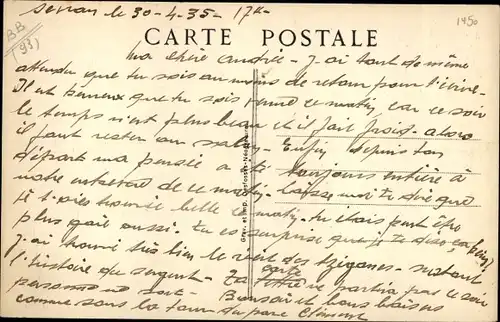 Sevran le 30-4-35- 17h-
1450
BB
(93)
CARTE POSTALE
Ma chère Andrée - J'ai tout de même
attendu que tu sois au moins de retour pour t'écrire-
Il est heureux que tu sois venue ce matin, car ce soir
le temps n'est plus beau et il fait froid - alors
il faut rester au
Enfin depuis ton
départ ma pensée a été toujours entière à
notre entrevue de ce matin - Laisse moi te dire que
je t'ai trouvée belle ce matin - tu étais peut être
plus gaie aussi - tu es surprise que je te dise ça
j'ai trouvé très bien le des tziganes - surtout
l'histoire du sergent - Ta carte ne partira pas ce soir
personne ne sort - Bonsoir et bons baisers
comme sous la tour du parc
Grav. et Imp.